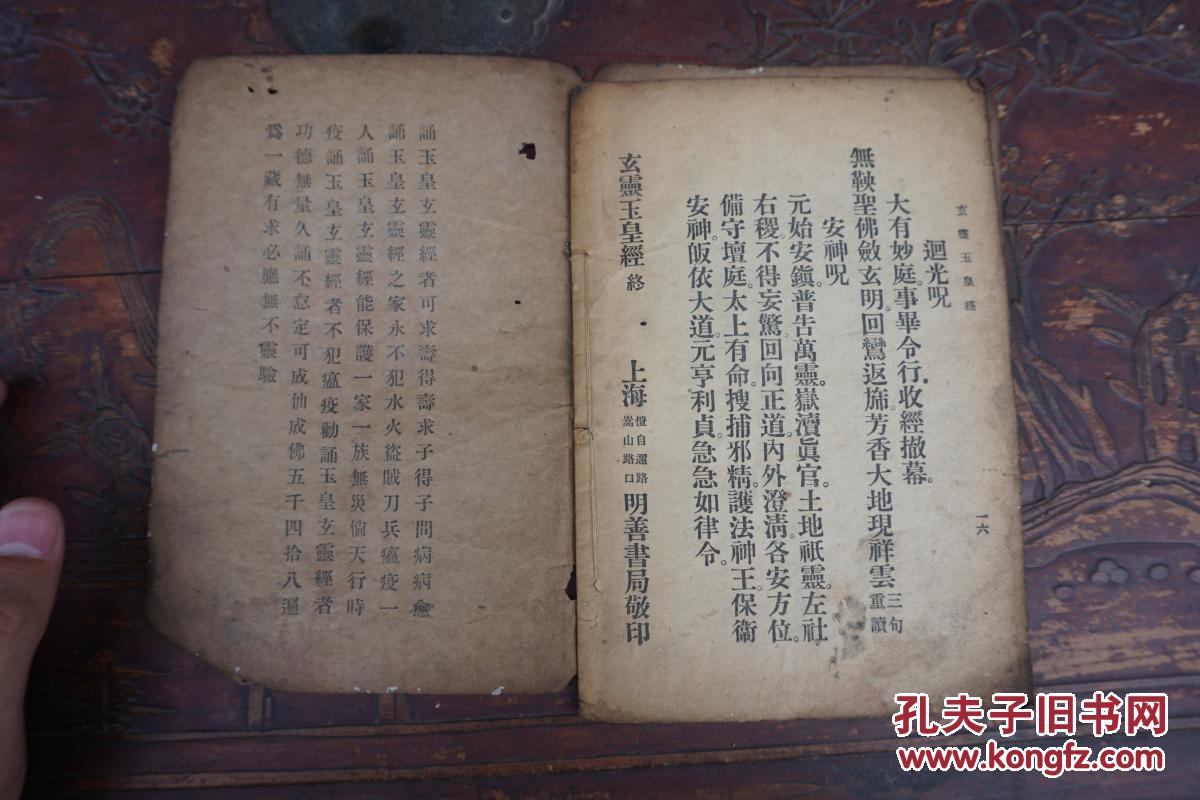 玄靈玉皇經
一六
迴光呪
大有妙庭。事畢令行。收經撤幕。
無鞅聖佛斂玄明。回鸞返旆。芳香大地現祥雲三句重讀
安神呪
元始安鎭。普告萬靈。嶽瀆眞官。土地祇靈。左社
右稷。不得妄驚。回向正道。內外澄淸。各安方位。
備守壇庭。太上有命。搜捕邪精。護法神王。保衞
安神。皈依大道。元亨利貞。急急如律令。
玄靈玉皇經 終
上海愷自邇路嵩山路口明善書局敬印
誦玉皇玄靈經者可求壽得壽求子得子問病病愈
誦玉皇玄靈經之家永不犯水火盜賊刀兵瘟疫一
人誦玉皇玄靈經能保護一家一族無災倘天行時
疫誦玉皇玄靈經者不犯瘟疫勸誦玉皇玄靈經者
功德無量久誦不怠定可成仙成佛五千四拾八遍
爲一藏有求必應無不靈驗
孔夫子旧书网
www.kongfz.com